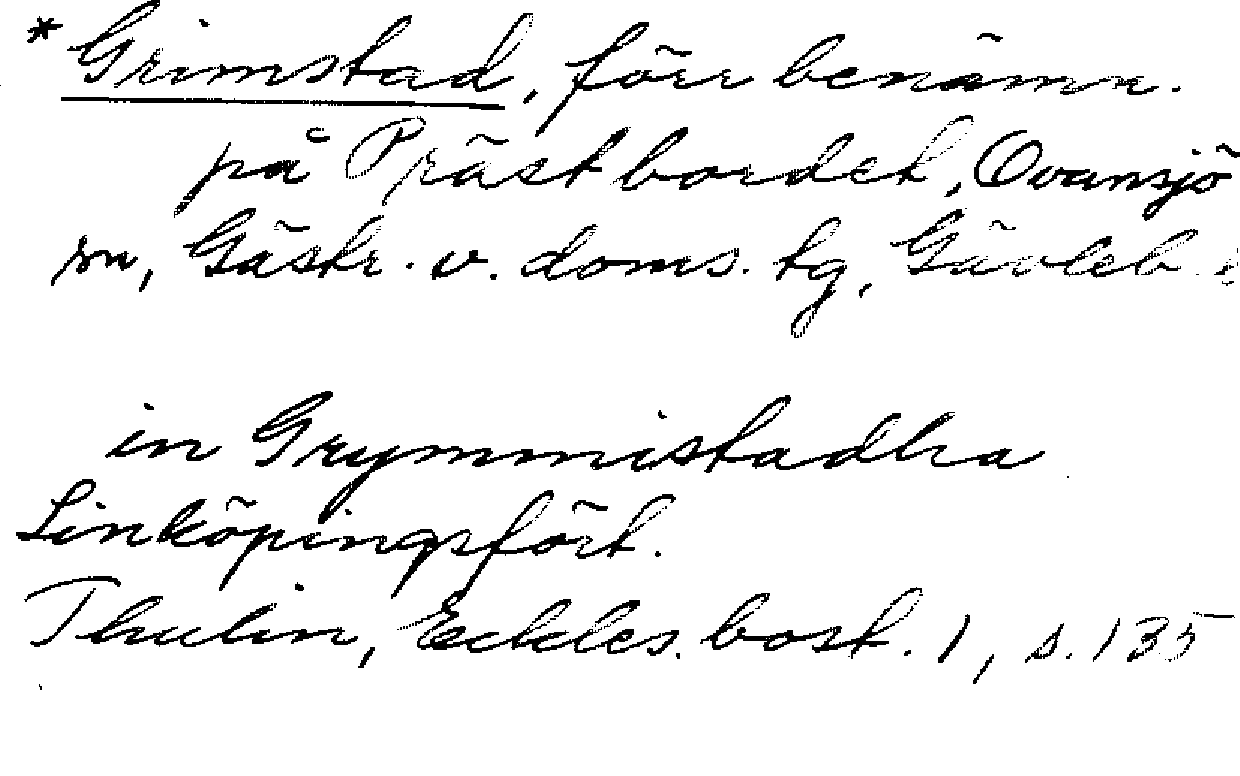 *Grimstad, förr benämn.
på Prästbordet, Ovansjö
sn, Gästr. v. doms. tg, Gävleb.
in Grymmistadha
Linköpingsfört.
Thulin, Eckles. bost. 1, s. 135